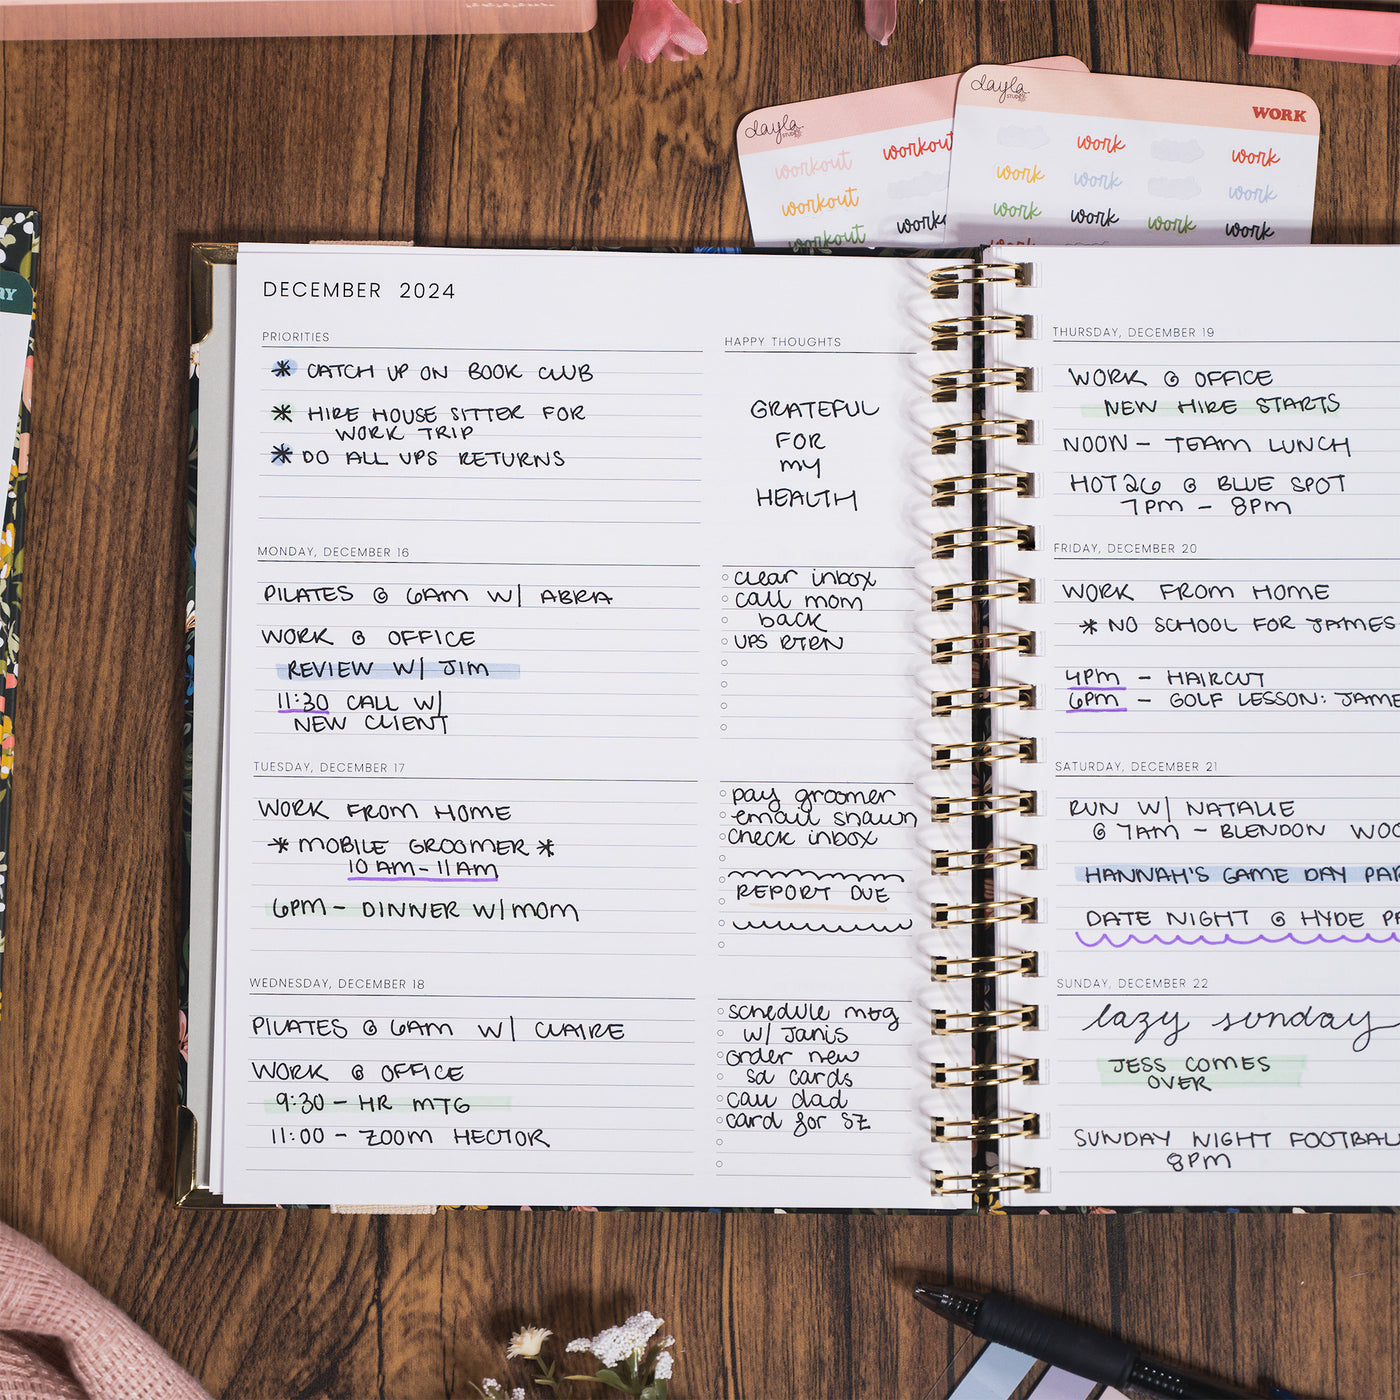 dayla
STUDIO
workout
workout
workout
workout
dayla
STUDIO
WORK
work
work
work
work
work
work
work
work
work
work
DECEMBER 2024
PRIORITIES
* CATCH UP ON BOOK CLUB
* HIRE HOUSE SITTER FOR
WORK TRIP
* DO ALL UPS RETURNS
HAPPY THOUGHTS
GRATEFUL
FOR
MY
HEALTH
MONDAY, DECEMBER 16
PILATES @ 6AM W/ ABRA
WORK @ OFFICE
REVIEW W/ JIM
11:30 CALL W/
NEW CLIENT
clear inbox
call mom
back
UPS RTRN
TUESDAY, DECEMBER 17
WORK FROM HOME
* MOBILE GROOMER *
10 AM - 11 AM
6PM - DINNER W/ MOM
pay groomer
email shawn
check inbox
REPORT DUE
WEDNESDAY, DECEMBER 18
PILATES @ 6AM W/ CLAIRE
WORK @ OFFICE
9:30 - HR MTG
11:00 - ZOOM HECTOR
schedule mtg
w/ Janis
order new
sd cards
call dad
card for SZ
THURSDAY, DECEMBER 19
WORK @ OFFICE
NEW HIRE STARTS
NOON - TEAM LUNCH
HOT26 @ BLUE SPOT
7PM - 8PM
FRIDAY, DECEMBER 20
WORK FROM HOME
* NO SCHOOL FOR JAMES
4PM - HAIRCUT
6PM - GOLF LESSON: JAME
SATURDAY, DECEMBER 21
RUN W/ NATALIE
@ 7AM - BLENDON WOO
HANNAH'S GAME DAY PAR
DATE NIGHT @ HYDE PA
SUNDAY, DECEMBER 22
lazy sunday
JESS COMES
OVER
SUNDAY NIGHT FOOTBAL
8PM